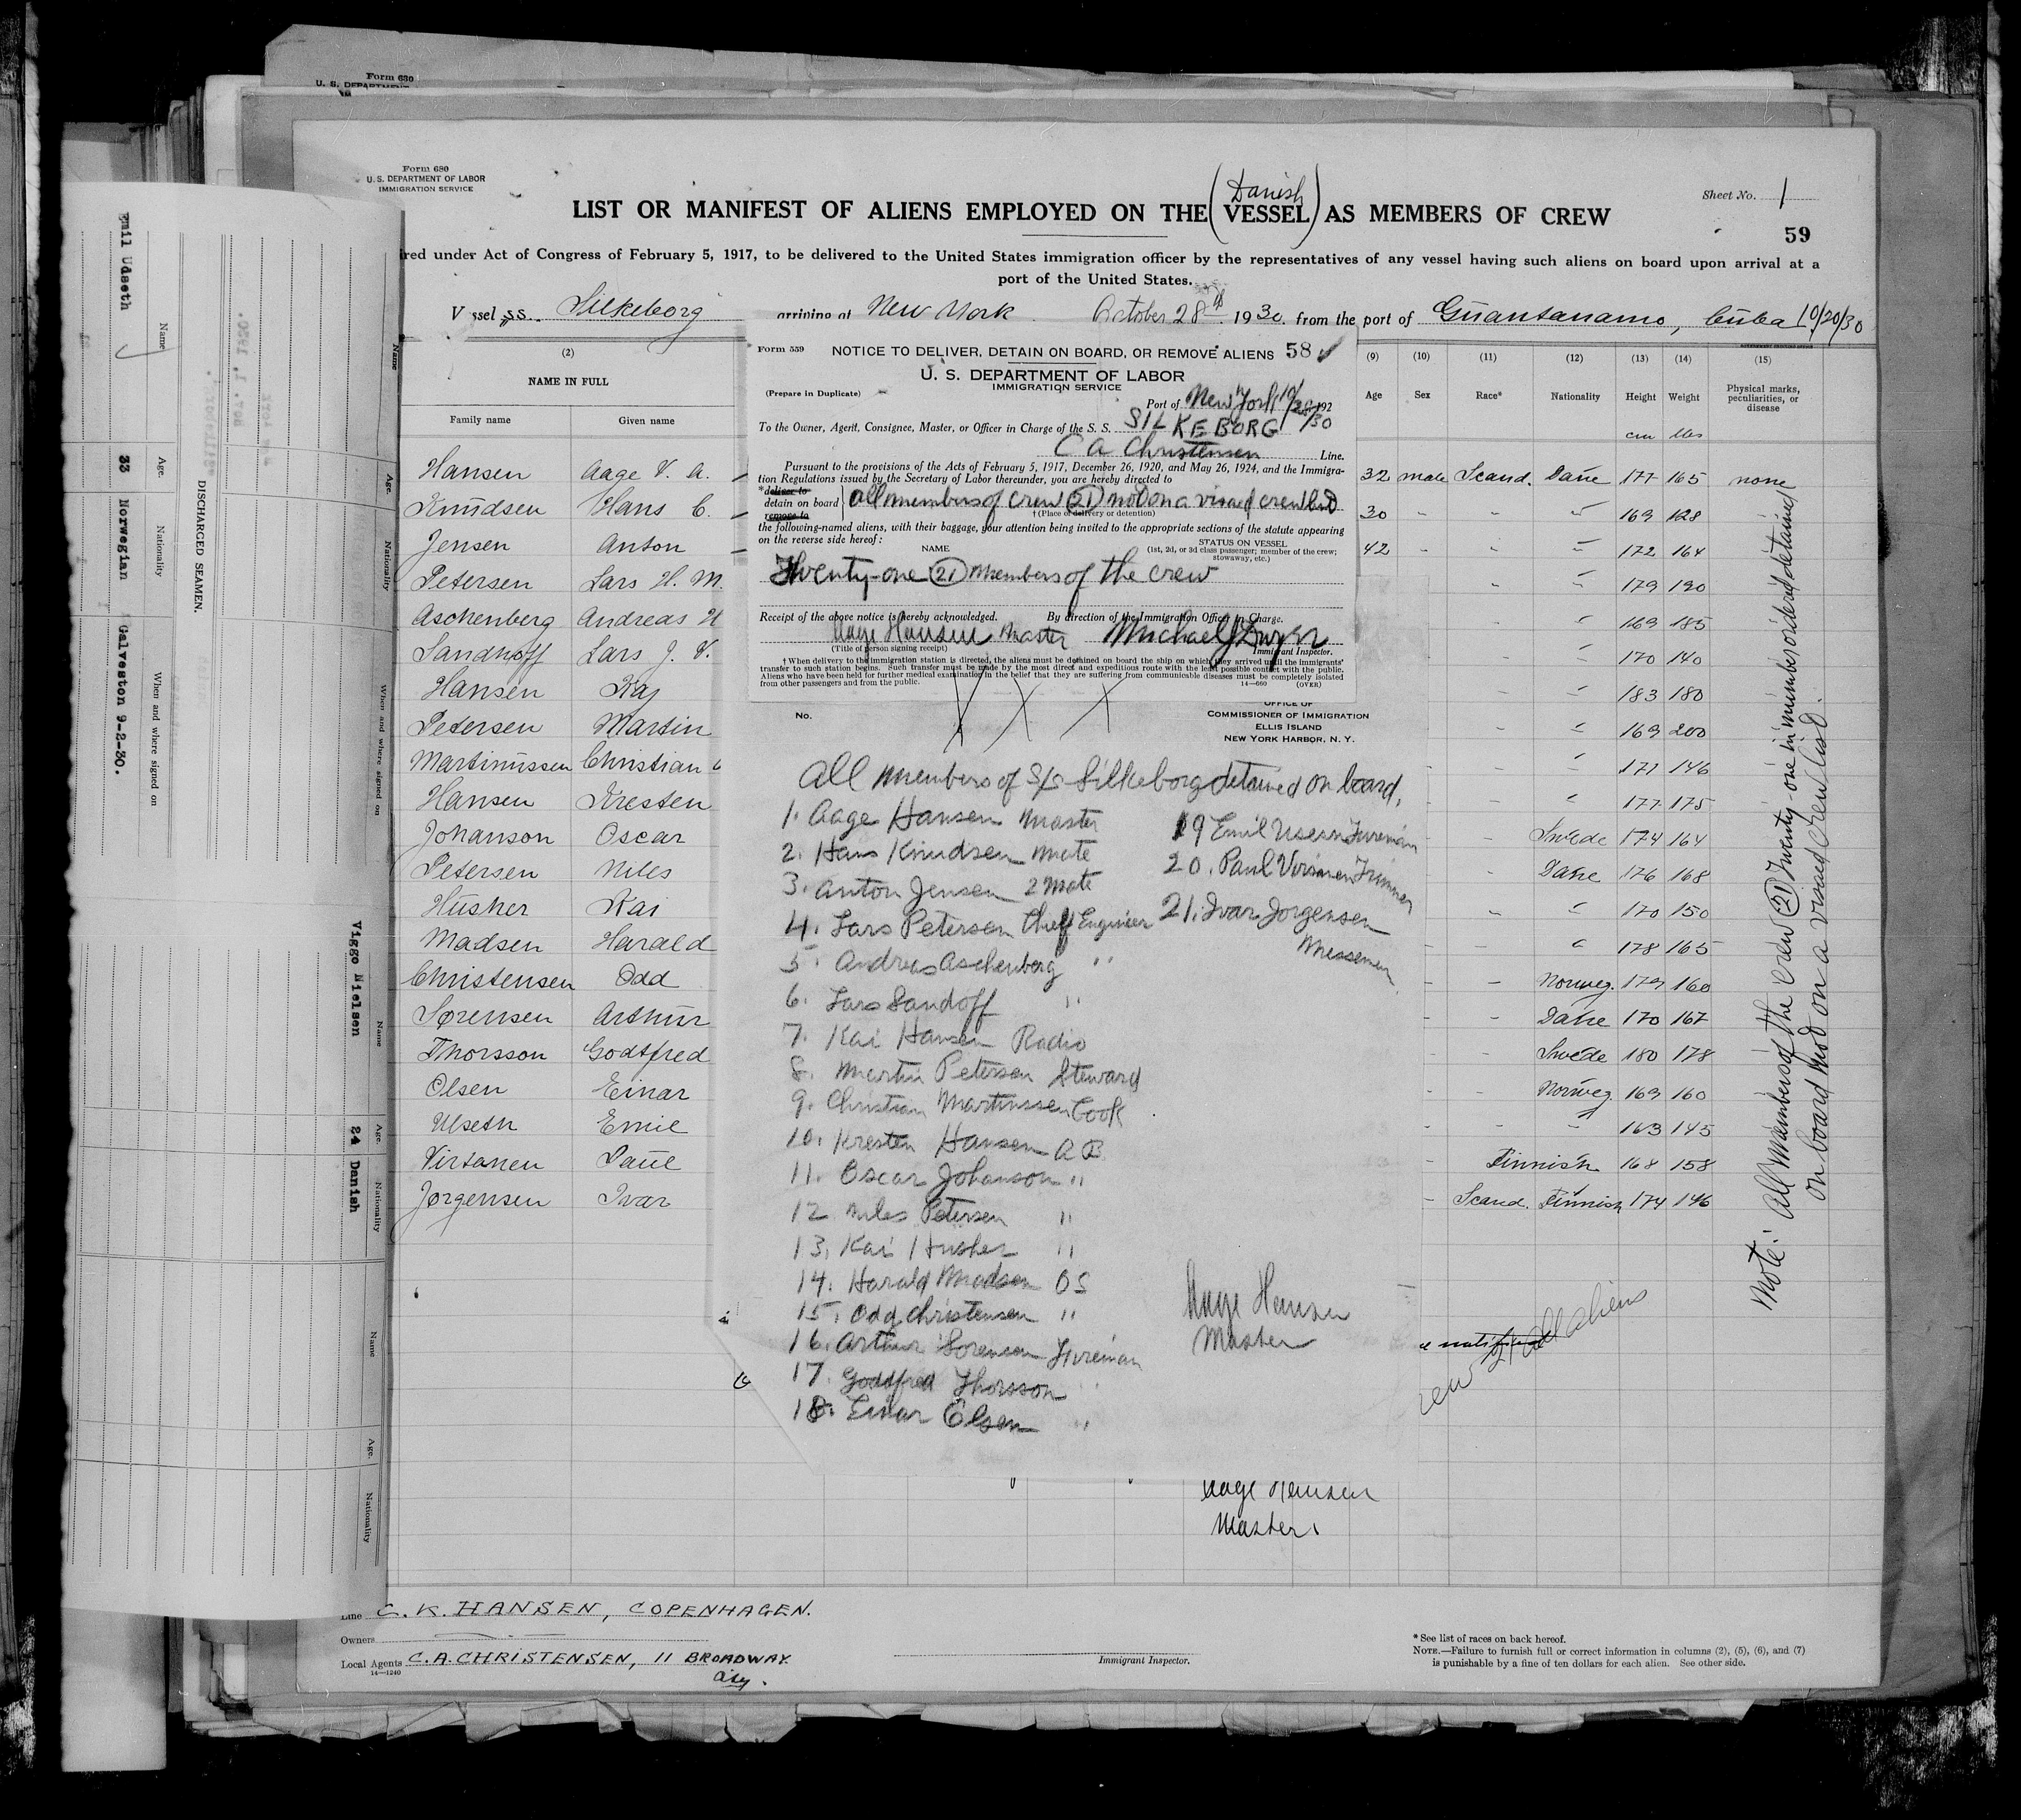 Form 630
U. S. DEPARTMENT
Form 680
U. S. DEPARTMENT OF LABOR
IMMIGRATION SERVICE
Sheet No. 1
59
Danish
LIST OR MANIFEST OF ALIENS EMPLOYED ON THE (VESSEL) AS MEMBERS OF CREW
red under Act of Congress of February 5, 1917, to be delivered to the United States immigration officer by the representatives of any vessel having such aliens on board upon arrival at a
port of the United States.
Vessel SS. Silkeborg arriving at New York October 28th 1930, from the port of Guantanamo, Cuba 10/20/30
(2)
NAME IN FULL
Family name Given name
Hansen Aage V. A.
Knudsen Hans C.
Jensen Anton
Petersen Lars H. M.
Aschenberg Andreas H
Sandhoff Lars J. V.
Hansen Kaj
Petersen Martin
Martinussen Christian
Hansen Kresten
Johanson Oscar
Petersen Niles
Husher Kai
Madsen Harald
Christensen Odd
Sørensen Arthur
Thorsson Godtfred
Olsen Einar
Useth Emil
Virtanen Paul
Jørgensen Ivar
Form 559 NOTICE TO DELIVER, DETAIN ON BOARD, OR REMOVE ALIENS 58
U. S. DEPARTMENT OF LABOR
IMMIGRATION SERVICE
(Prepare in Duplicate)
Port of New York 10/28/30 192
To the Owner, Agent, Consignee, Master, or Officer in Charge of the S. S. SILKEBORG
C A Christensen Line.
Pursuant to the provisions of the Acts of February 5, 1917, December 26, 1920, and May 26, 1924, and the Immigra-
tion Regulations issued by the Secretary of Labor thereunder, you are hereby directed to
*deliver to
detain on board
remove to
all members of crew (21) not on a visaed crew list
†(Place of delivery or detention)
the following-named aliens, with their baggage, your attention being invited to the appropriate sections of the statute appearing
on the reverse side hereof:
NAME STATUS ON VESSEL
(1st, 2d, or 3d class passenger; member of the crew;
stowaway, etc.)
Twenty-one (21) members of the crew
Receipt of the above notice is hereby acknowledged. By direction of the Immigration Officer in Charge.
Aage Hansen Master Michael J Dwyer
(Title of person signing receipt) Immigrant Inspector.
†When delivery to the immigration station is directed, the aliens must be detained on board the ship on which they arrived until the immigrants'
transfer to such station begins. Such transfer must be made by the most direct and expeditious route with the least possible contact with the public.
Aliens who have been held for further medical examination in the belief that they are suffering from communicable diseases must be completely isolated
from other passengers and from the public. 14—660 (OVER)
No.
OFFICE OF
COMMISSIONER OF IMMIGRATION
ELLIS ISLAND
NEW YORK HARBOR, N. Y.
All members of S/S Silkeborg detained on board,
1. Aage Hansen Master
2. Hans Knudsen Mate
3. Anton Jensen 2 Mate
4. Lars Petersen Chief Engineer
5. Andreas Aschenberg "
6. Lars Sandoff "
7. Kai Hansen Radio
8. Martin Petersen Steward
9. Christian Martinssen Cook
10. Kresten Hansen A B
11. Oscar Johanson "
12 Niles Petersen "
13. Kai Husher "
14. Harald Madsen OS
15. Odd Christensen "
16. Arthur Sorensen Fireman
17. Godtfred Thorsson "
18. Einar Olsen "
19 Emil Useth Fireman
20. Paul Virtanen Trimmer
21. Ivar Jorgensen
Messeman
Aage Hansen
Master
Aage Hansen
Master
(9) (10) (11) (12) (13) (14) (15)
Age Sex Race* Nationality Height Weight Physical marks,
peculiarities, or
disease
cm lbs
32 male Scand. Dane 177 165 none
30 " " " 169 128
42 " " " 172 164
" " 179 190
" " 169 185
" " 170 140
" " 183 180
" " 169 200
" " 171 146
" " 177 175
" Swede 174 164
" Dane 176 168
" " 170 150
" " 178 165
" Norweg. 179 160
" Dane 170 167
" Swede 180 178
" Norweg 169 160
" " 163 145
Finnish 168 158
Scand. Finnish 174 146
Note: All members of the crew (21) Twenty one in number ordered detained
on board not on a visaed crew list.
all aliens
Line C. K. HANSEN, COPENHAGEN.
Owners
Local Agents C. A. CHRISTENSEN, 11 BROADWAY.
City.
14—1240
Immigrant Inspector.
*See list of races on back hereof.
NOTE.—Failure to furnish full or correct information in columns (2), (5), (6), and (7)
is punishable by a fine of ten dollars for each alien. See other side.
DISCHARGED SEAMEN.
Name Age. Nationality When and where signed on
Emil Udseth 33 Norwegian Galveston 9-2-30.
Name Age. Nationality When and where signed on
Name Age. Nationality
Viggo Nielsen 24 Danish
Name Age. Nationality